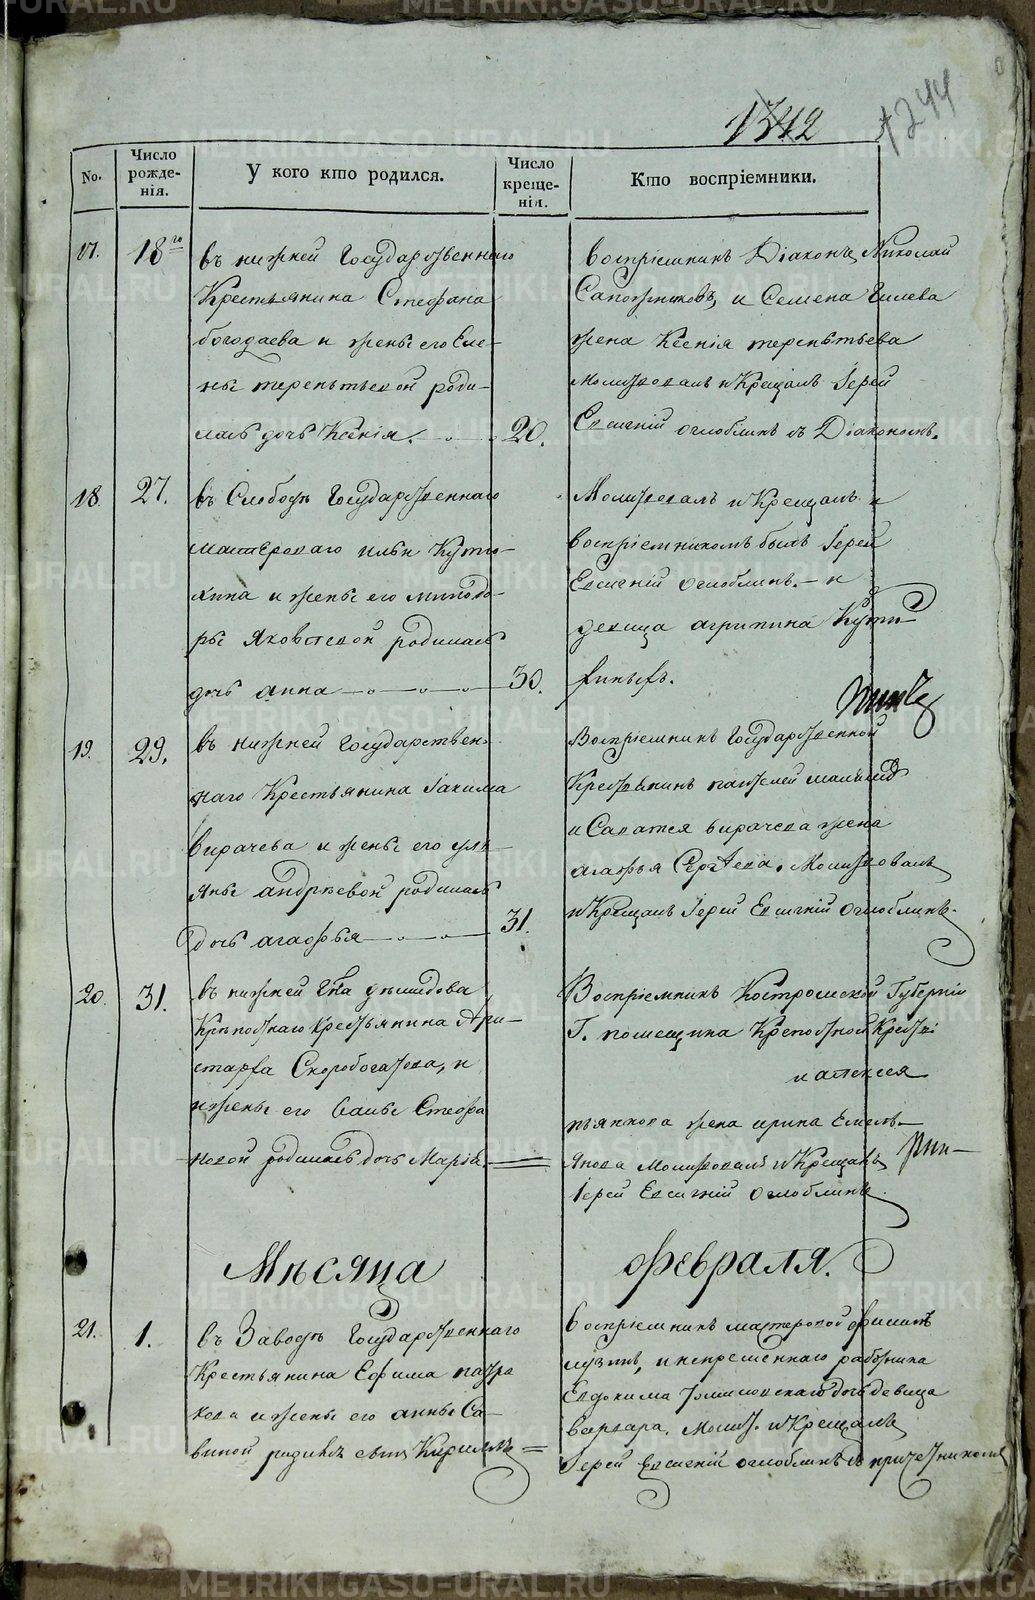 1342
1244
No.
Число рожде-
нія.
У кого кто родился.
Число креще-
нія.
Кто воспріемники.
17.
18го
въ нижней Государственнаго
Крестьянина Стефана
богодаева и жены его Еле-
ны терентьевой роди-
лась дочь Ксенія.
20.
воспріемникъ Діаконъ Николай
Сапожниковъ, и Семена Гилева
жена Ксенія терентьева
Молитвовалъ и Крещалъ Іерей
Евгеній оглоблинъ съ Діакономъ.
18.
27.
въ Слободѣ Государственнаго
мастероваго ильи Кутю-
хина и жены его минодо-
ры Яковлевой родилась
дочь анна
30.
Молитвовалъ и Крещалъ и
воспріемникомъ былъ Іерей
Евгеній оглоблинъ. и
девица агрипина
19.
29.
въ нижней Государствен-
наго Крестьянина Іакима
вирачева и жены его уль-
яны андреевой родилась
дочь агафья
31.
Воспріемникъ Государственной
Крестьянинъ
и Саватея вирачева жена
агафья Сергѣева. Молитвовалъ
и Крещалъ Іерей Евгеній оглоблинъ.
20.
31.
въ нижней Гна дѣмидова
Крѣпостнаго Крестьянина Ари-
старха Скоробогатова, и
жены его Стефа
новой родилась дочь Марія.
Воспріемникъ Костромской Губерніи
Г. помещика Крепостной
и алексея
жена ирина Емель-
янова Молитвовалъ и Крещалъ
Іерей Евгеній оглоблинъ
Мѣсяца
февраля.
21.
1.
въ Заводѣ Государственнаго
Крестьянина Ефима
и жены его анны Са-
виной родился сынъ Кирилъ
воспріемникъ мастеровой филипъ
и непременнаго работника
Евдокима дочь девица
варвара. Молит. и Крещалъ
Іерей Евгеній оглоблинъ съ причетникомъ
METRIKI.GASO-URAL.RU